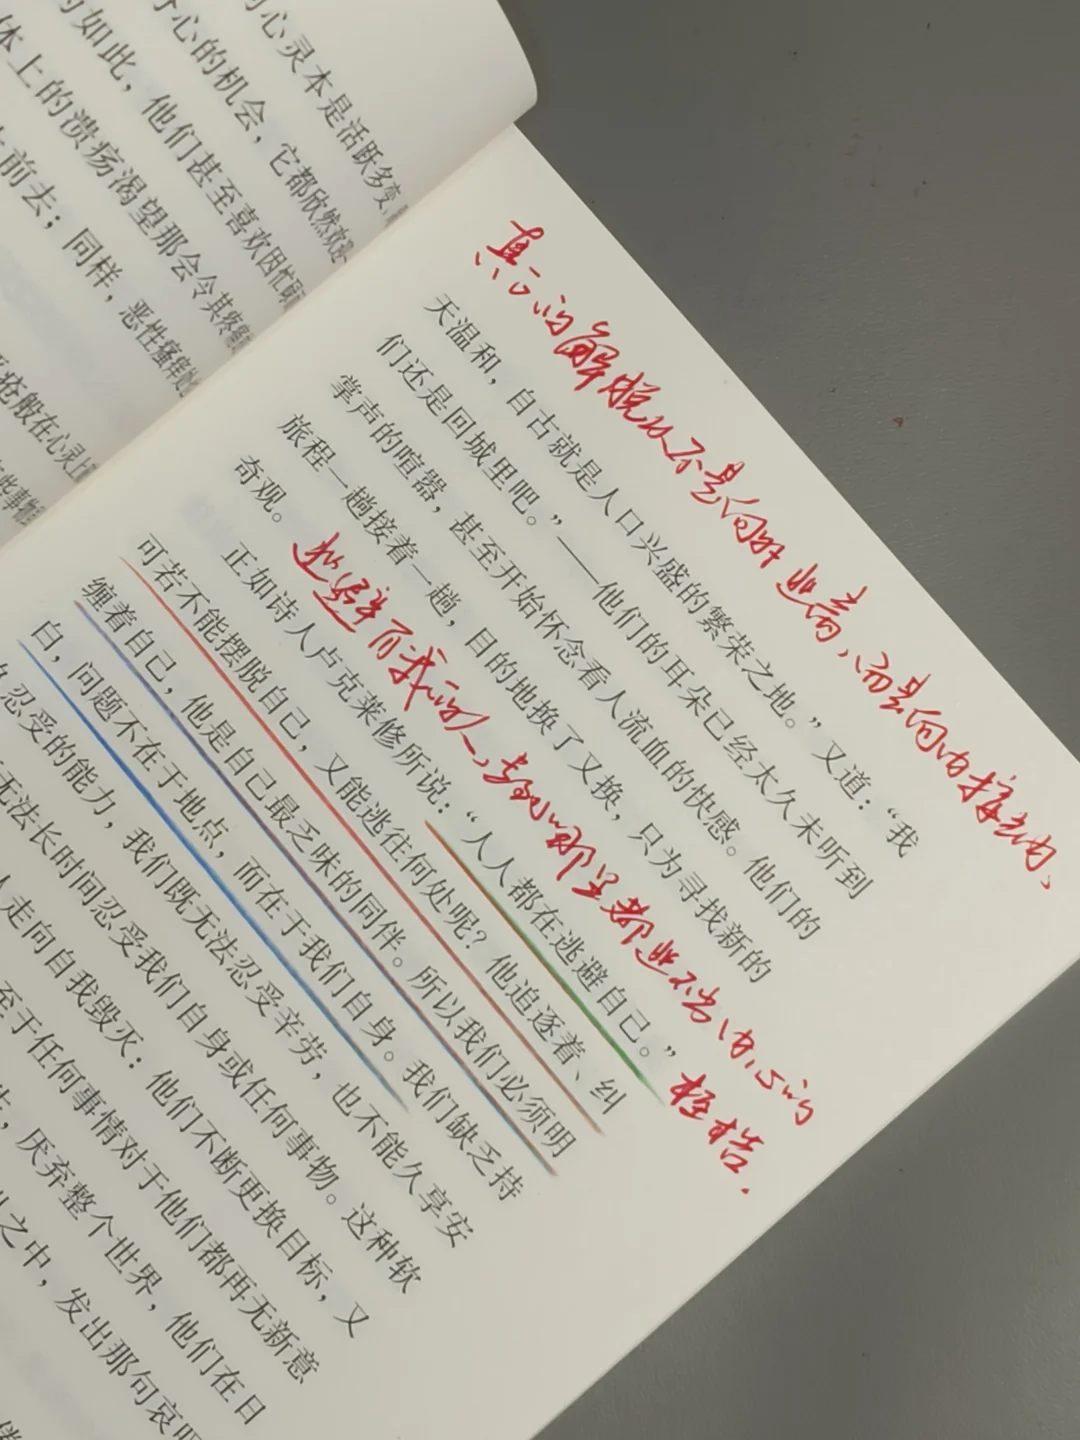 心灵本是活跃多变
心的机会，它都欣然欢迎
的如此，他们甚至喜欢因忙碌
体上的溃疡渴望那会令其疼
前去；同样，恶性瘙痒
疮般在心灵上
些事物
真正的解脱从不是向外逃离，而是向内接纳、
天温和，自古就是人口兴盛的繁荣之地。”又道：“我
们还是回城里吧。”——他们的耳朵已经太久未听到
掌声的喧嚣，甚至开始怀念看人流血的快感。他们的
旅程一趟接着一趟，目的地换了又换，只为寻找新的
奇观。
逃避自我的人，走到哪里都逃不出内心的
桎梏.
正如诗人卢克莱修所说：“人人都在逃避自己。”
可若不能摆脱自己，又能逃往何处呢？他追逐着、纠
缠着自己，他是自己最乏味的同伴。所以我们必须明
白，问题不在于地点，而在于我们自身。我们缺乏持
忍受的能力，我们既无法忍受辛劳，也不能久享安
无法长时间忍受我们自身或任何事物。这种软
人走向自我毁灭：他们不断更换目标，又
至于任何事情对于他们都再无新意
厌弃整个世界，他们在日
之中，发出那句哀